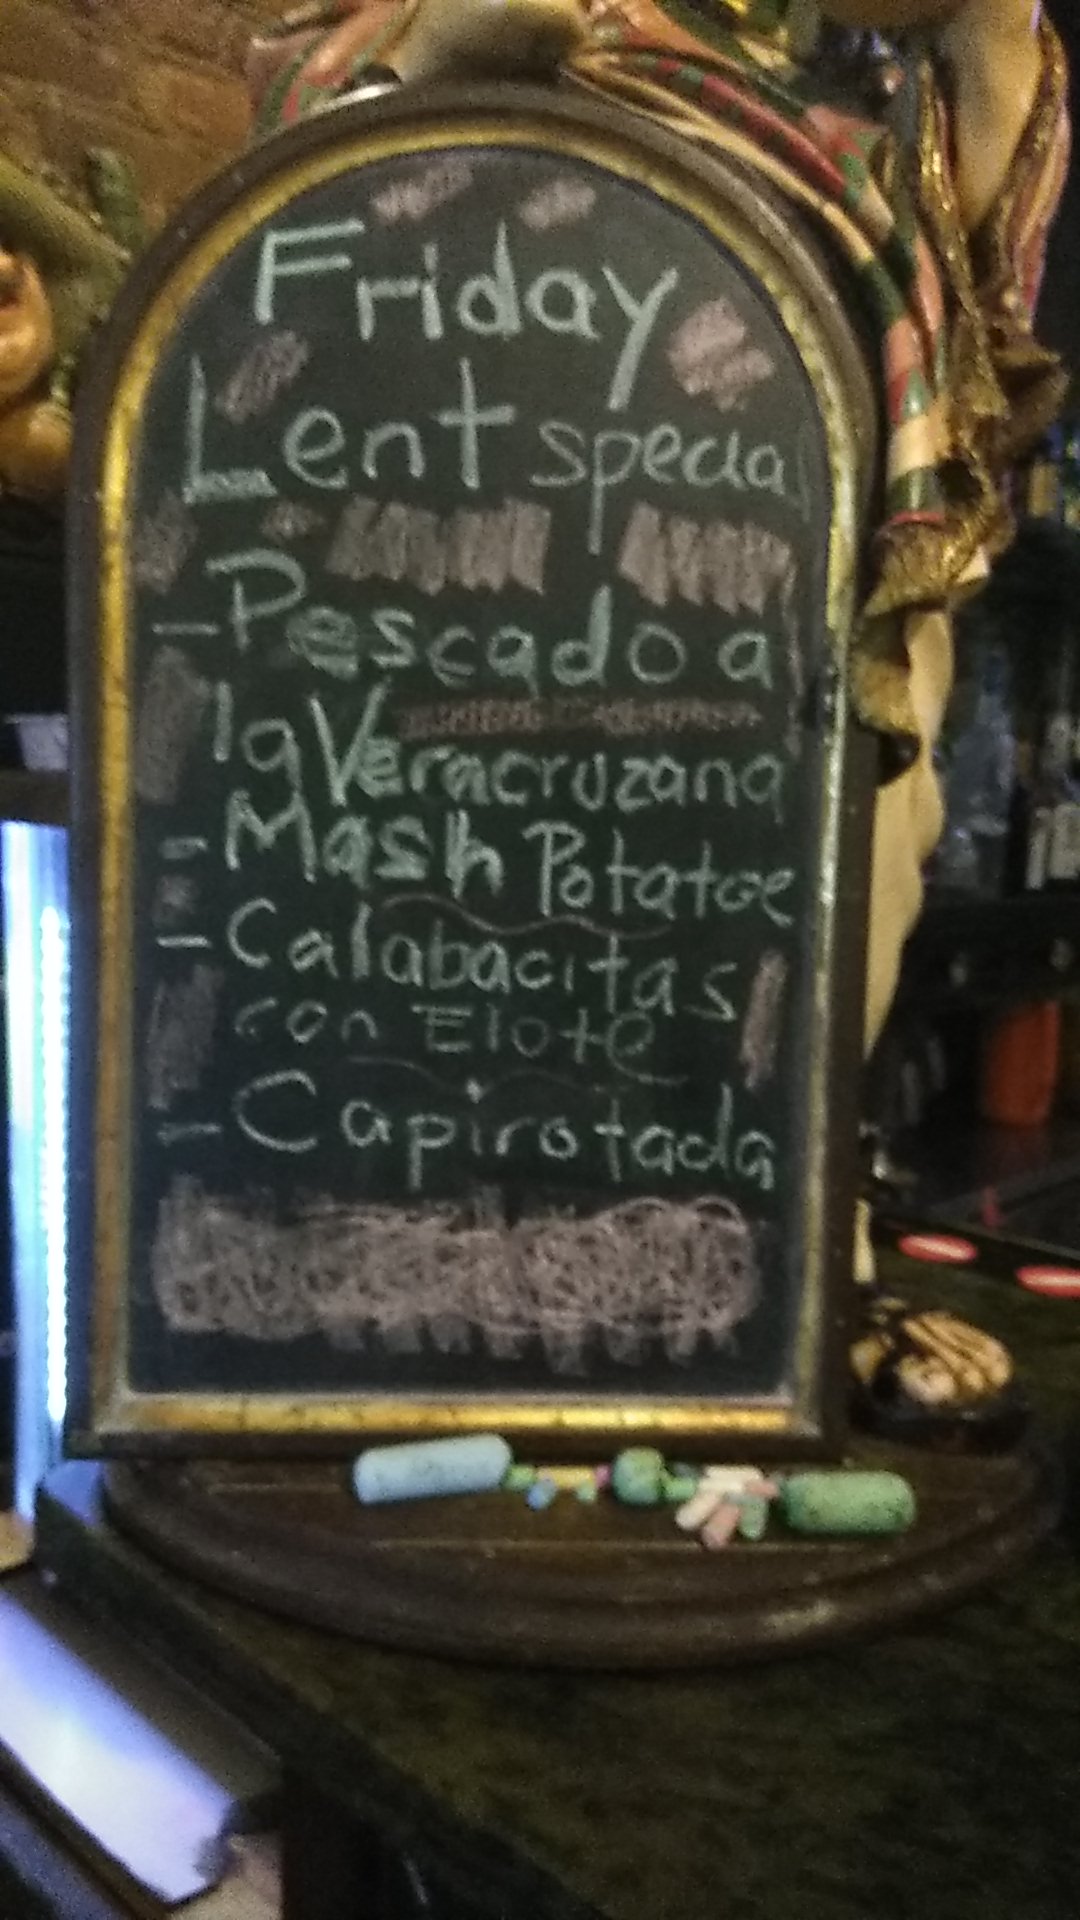 Friday
Lent special
- Pescado a
la Veracruzana
- Mash Potatoe
- Calabacitas
con Elote
- Capirotada